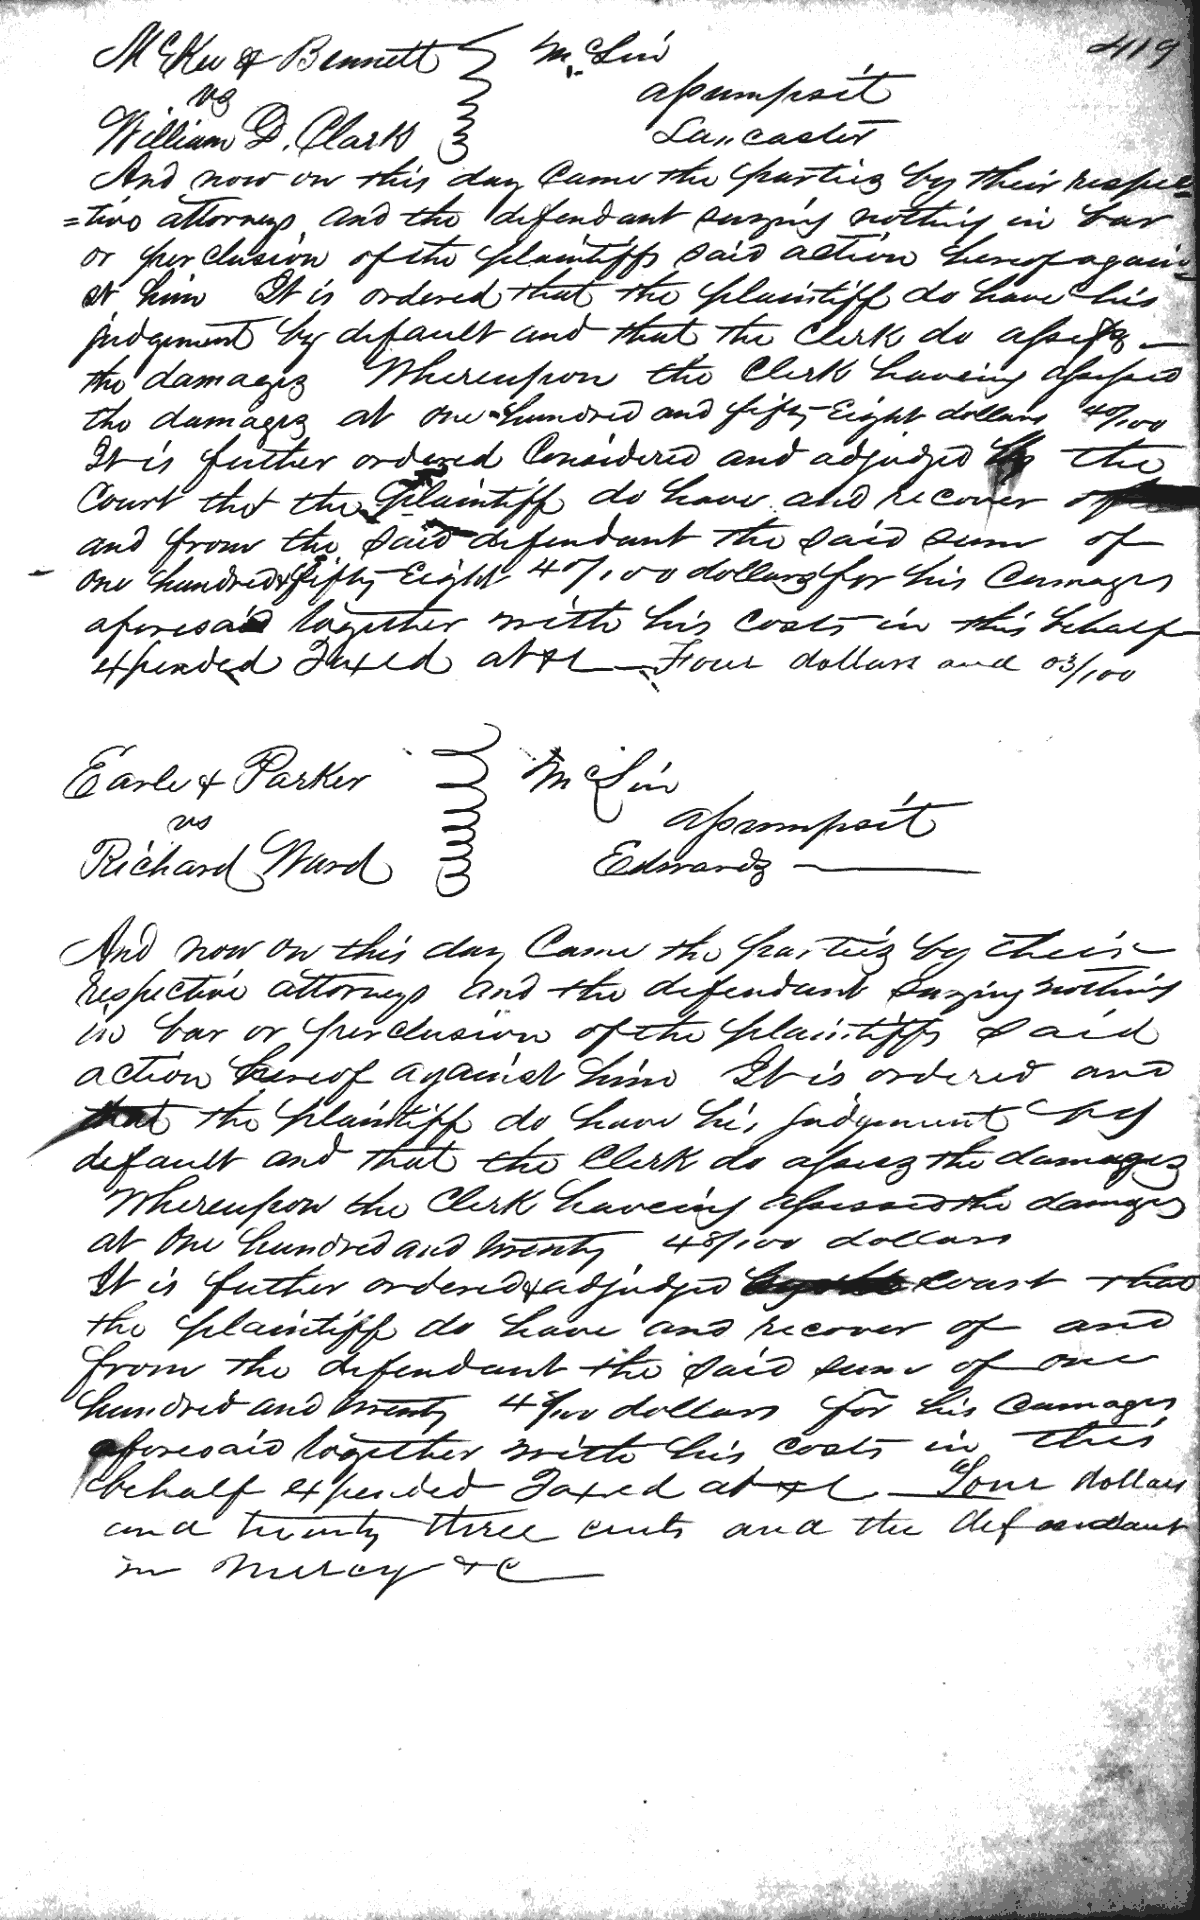 419
McKee & Bennett McLin
vs assumpsit
William D. Clark Lancaster
And now on this day Came the parties by their respec
=tive attorneys and the defendant saying nothing in bar
or perclusion of the plaintiffs said action hereof again
st him It is ordered that the plaintiff do have his
judgement by default and that the Clerk do assess
the damages Whereupon the Clerk haveing assessed
the damages at one hundred and fifty Eight dollars 40/100
It is further ordered Considered and adjudged by the
Court that the plaintiff do have and recover of
and from the said defendant the said sum of
one hundred & fifty Eight 40/100 dollars for his Damages
aforesaid together with his costs in this behalf
expended Taxed at &c Four dollars and 03/100
Earle & Parker McLin
vs assumpsit
Richard Ward Edwards
And now on this day Came the parties by their
respective attorneys and the defendant saying nothing
in bar or perclusion of the plaintiffs said
action hereof against him It is ordered and
that the plaintiff do have his judgement by
default and that the Clerk do assess the damages
Whereupon the Clerk haveing assessed the damages
at One hundred and twenty 48/100 dollars
It is futher ordered & adjudged by the Court that
the plaintiff do have and recover of and
from the defendant the said sum of one
hundred and twenty 48/100 dollars for his Damages
aforesaid together with his costs in this
behalf expended Taxed at &c Four dollars
and twenty three cents and the defendant
in mercy &C